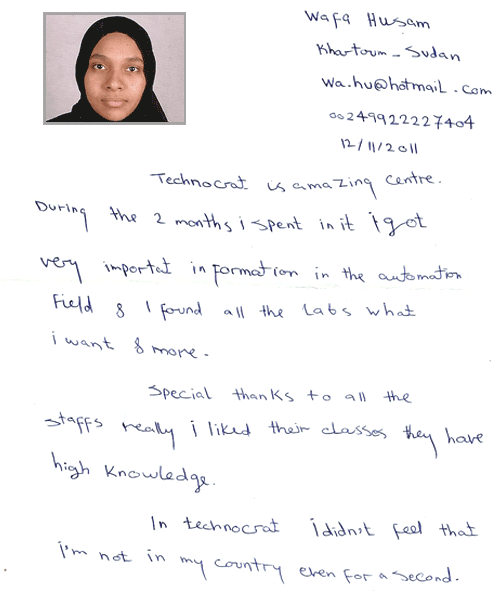 Wafa Husam
Khartoum - Sudan
wa.hu@hotmail.com
00249922227404
12/11/2011
Technocrat is amazing centre.
During the 2 months i spent in it i got
very importat information in the automation
Field & I found all the Labs what
i want & more.
Special thanks to all the
staffs really i liked their classes they have
high knowledge.
In technocrat i didn't feel that
i'm not in my country even for a second.